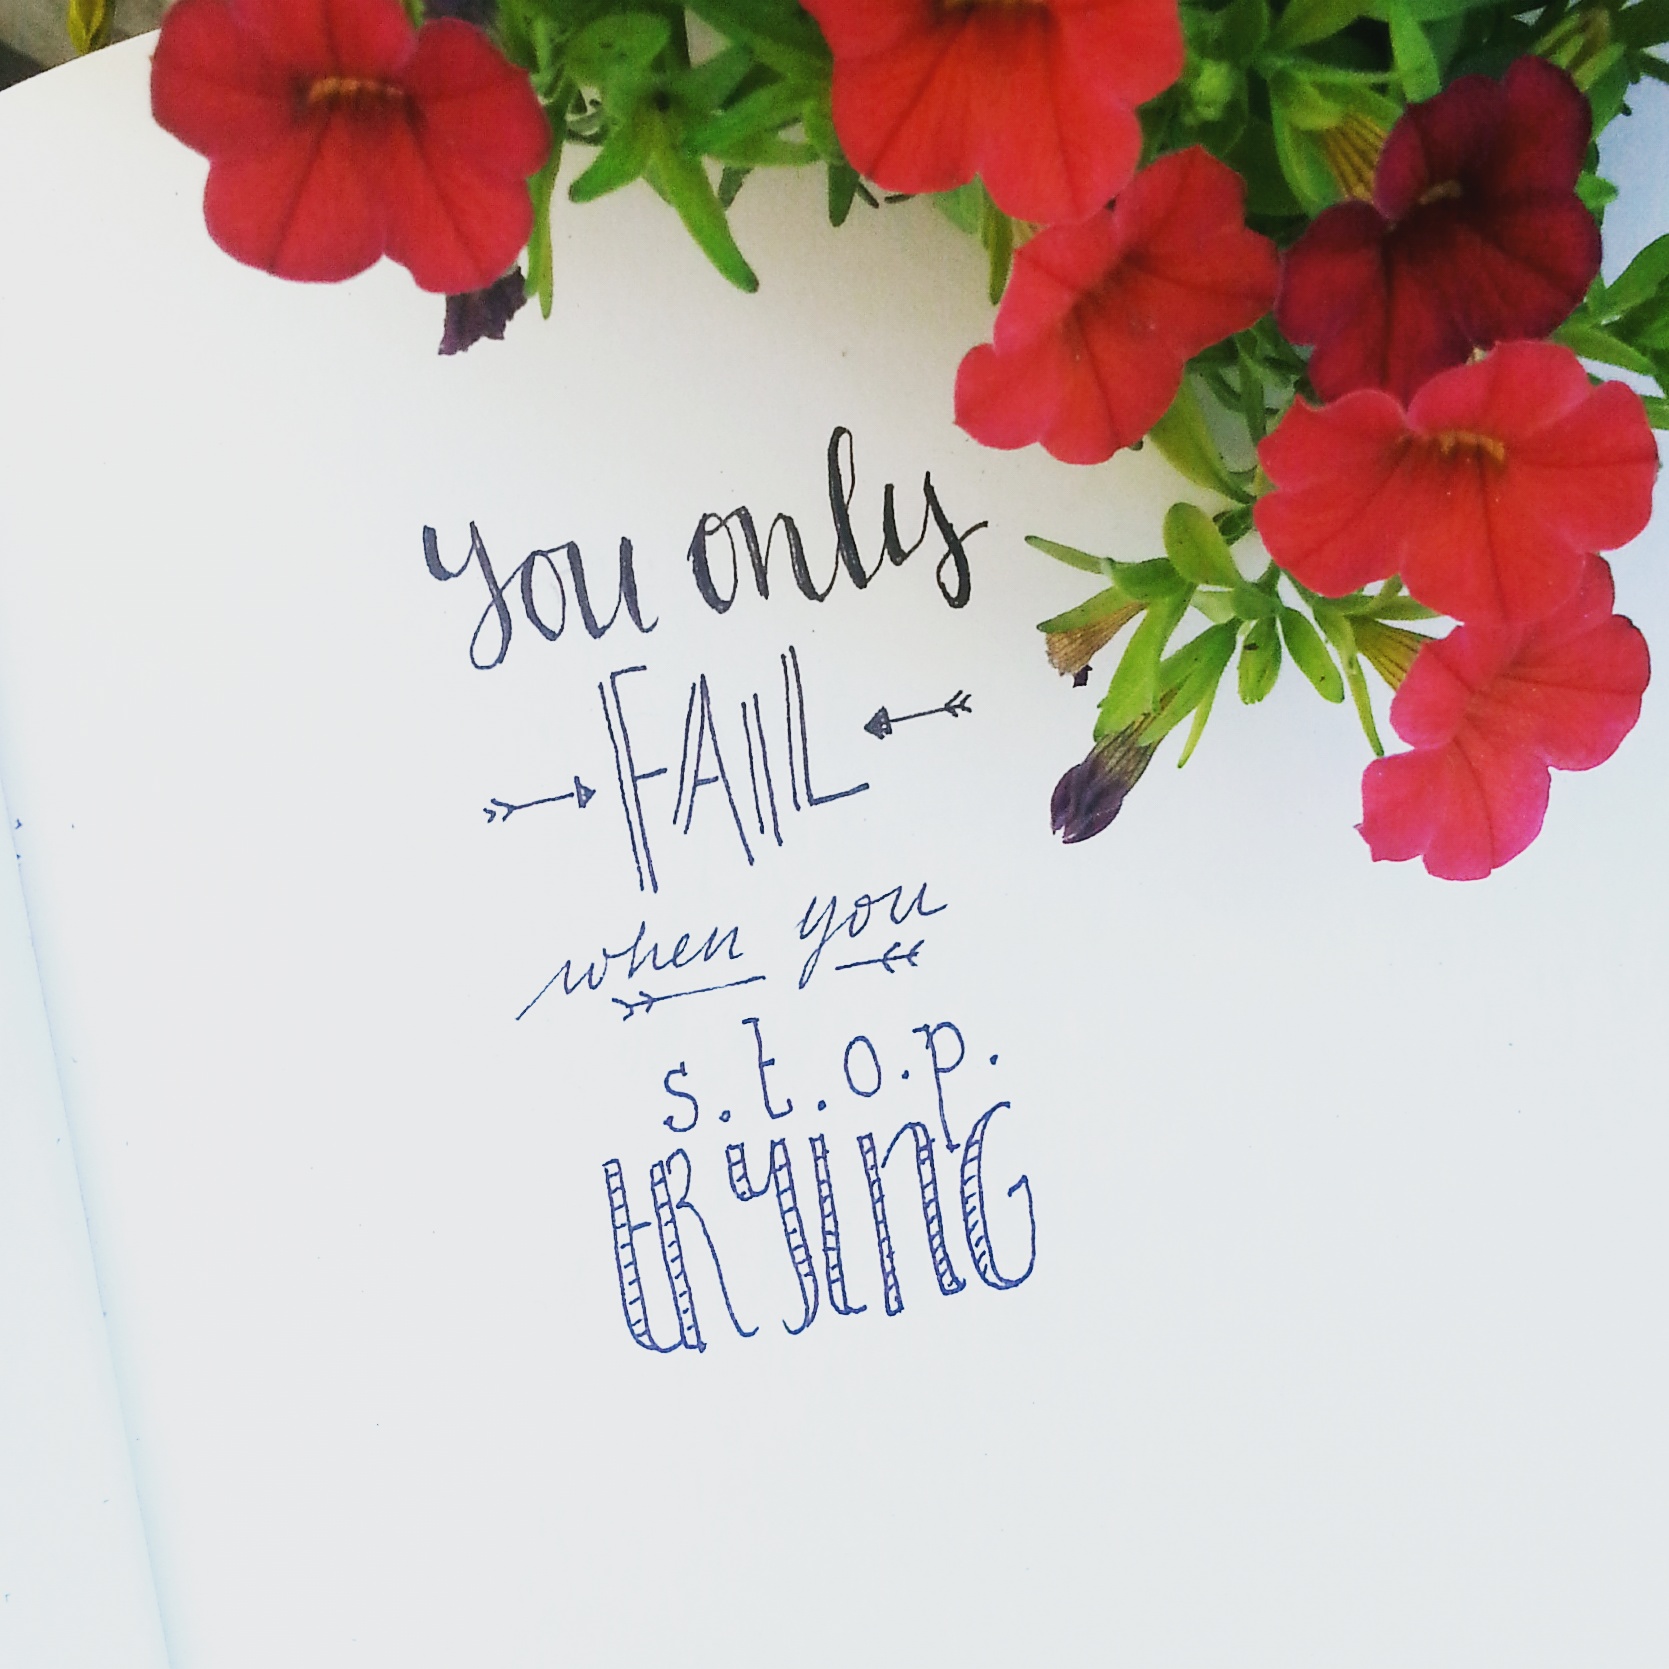 You only
FAIL
when you
s.t.o.p.
tRYING